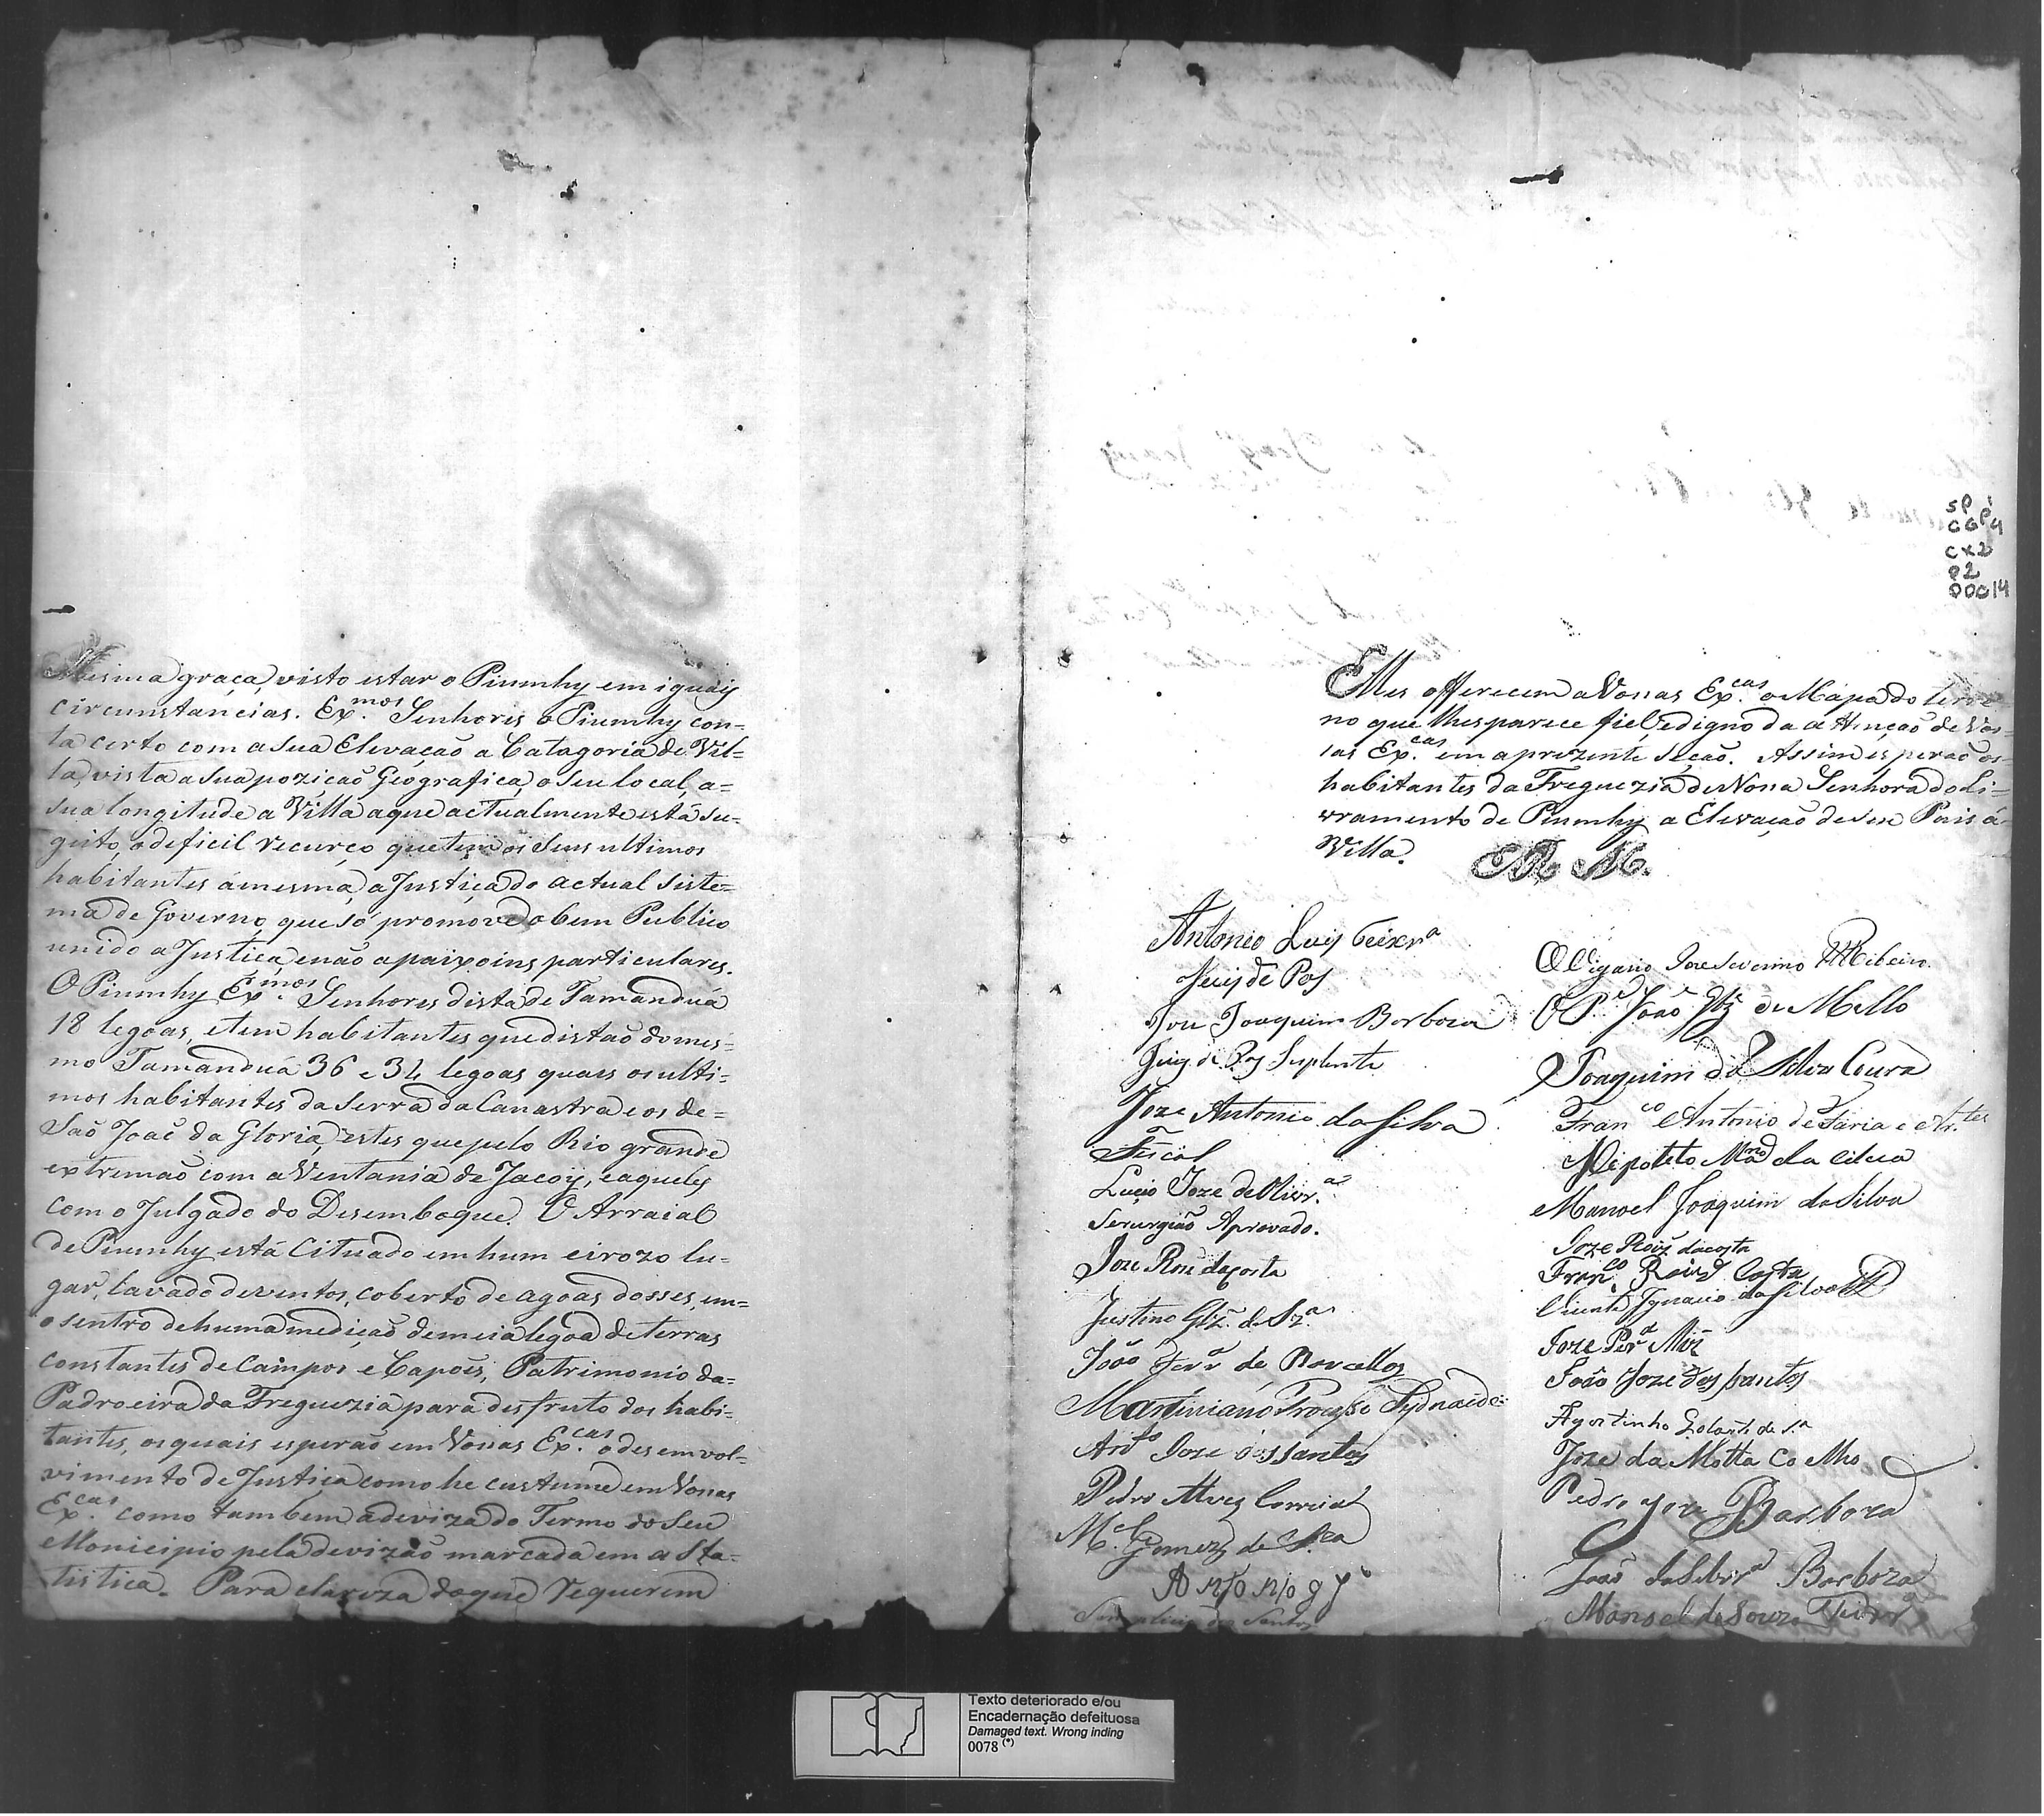 Mesma graça, visto estar o Piumhy em iguais
circunstancias. Ex.mos Senhores o Piumhy con=
ta certo com a sua Elevação a Catagoria de Vil=
la, vista a sua pozição Geografica, o seu local, a=
sua longitude a Villa a que actualmente está su=
geito, o deficil recurço que tem os seus ultimos
habitantes á mesma, a Justiça do actual siste=
ma de Governo, que só promove o bem Publico
unido a Justiça, e não a paixoins particulares.
O Piumhy Ex.mos Senhores dista de Tamanduá
18 legoas, e tem habitantes que distaõ do mes=
mo Tamanduá 36 e 34 legoas quais os ulti=
mos habitantes da Serra da Canastra e os de=
Saõ Joaõ da Gloria, estes que pelo Rio grande
extremaõ com a Ventania de Jacoy, e aqueles
com o Julgado do Desemboque. O Arraial
de Piumhy está Cituado em hum airozo lu=
gar, lavado de ventos, coberto de agoas dosses, em=
o sentro de huma mediçaõ de meia legoa de terras
constantes de Campos e Capões, Patrimonio da=
Padroeira da Freguezia para desfruto dos habi=
tantes, os quais esperaõ em Vossas Ex.cas o desemvol=
vimento de Justiça como he custume em Vossas
Ex.cas como tambem a deviza do Termo do Seu
Monicipio pela devizaõ marcada em a Sta=
tistica. Para clareza do que requerem
SP
CGP4
cx2
P2
DOC14
Elles offerecem a Vossas Ex.cas o Mapa do terre=
no que lhes parece fiel, e digno da attenção de Vos=
sas Ex.cas em a prezente Seçaõ. Assim esperaõ os=
habitantes da Freguezia de Nossa Senhora do Li=
vramento de Piumhy a Elevaçaõ de seu Pais á=
Villa.
E R M.
Antonio Luis Teixr.a
Juis de Pas
Joze Joaquim Barboza
Juiz de Paz Suplente
Joze Antonio da Silva
Fiscal
Lucio Joze de Olivr.a
Serurgiaõ Aprovado.
Joze Roiz da Costa
Justino Glz. de Sz.a
João Ferr.a de Barcellos
Martiniano Processo
Ant.o Joze dos Santos
Pedro Alves Correia
M.el Gomez de
Antonio
Simplicio dos Santos
O Vigario Joze Severino Ribeiro
O P.e João de Mello
Joaquim da Silva Coura
Fran.co Antonio de Faria e
Hipolito
Manoel Joaquim da Silva
Joze Roiz da costa
Fran.co Roiz Costa
Vicente Ignacio da Silva
Joze Per.a
João Joze dos santos
Agostinho
Joze da Motta Coelho
Pedro Joze Barboza
João da Silvr.a Barboza
Manoel de Souza
Texto deteriorado e/ou
Encadernação defeituosa
Damaged text. Wrong inding
0078 (*)